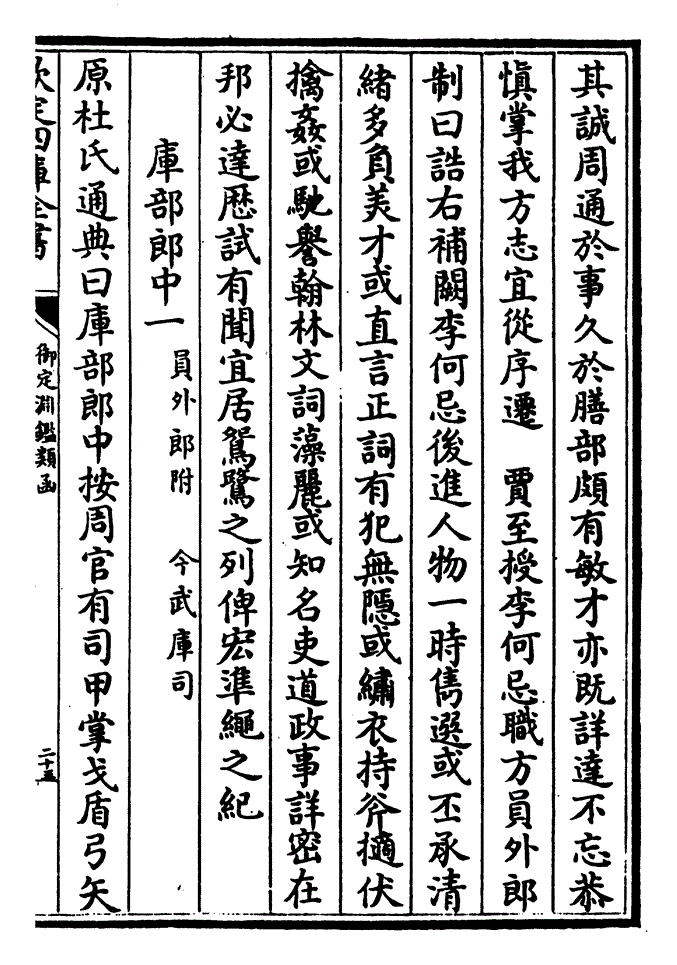 其誠周通於事久於膳部頗有敏才亦既詳達不忘恭
慎掌我方志宜從序遷　賈至授李何忌職方員外郎
制曰誥右補闕李何忌後進人物一時雋選或丕承清
緒多負美才或直言正詞有犯無隱或繡衣持斧擿伏
擒姦或馳譽翰林文詞藻麗或知名吏道政事詳密在
邦必達歴試有聞宜居鴛鷺之列俾宏準繩之紀
庫部郎中一　員外郎附　今武庫司
原杜氏通典曰庫部郎中按周官有司甲掌戈盾弓矢
欽定四庫全書　御定淵鑑類函　二十五